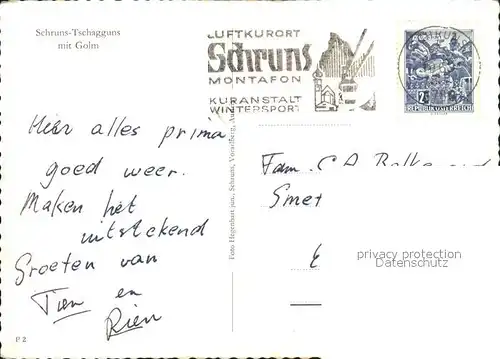 Schruns-Tschagguns
mit Golm
LUFTKURORT
Schruns
MONTAFON
KURANSTALT
WINTERSPORT
SCHRUNS
2S
REPUBLIK ÖSTERREICH
Hier alles prima
goed weer.
Maken het
uitstekend
Groeten van
Tien en
Rien
Foto Hegenbart jun., Schruns, Vorarlberg,
Fam. C A
Smet
privacy protection
Datenschutz
P 2